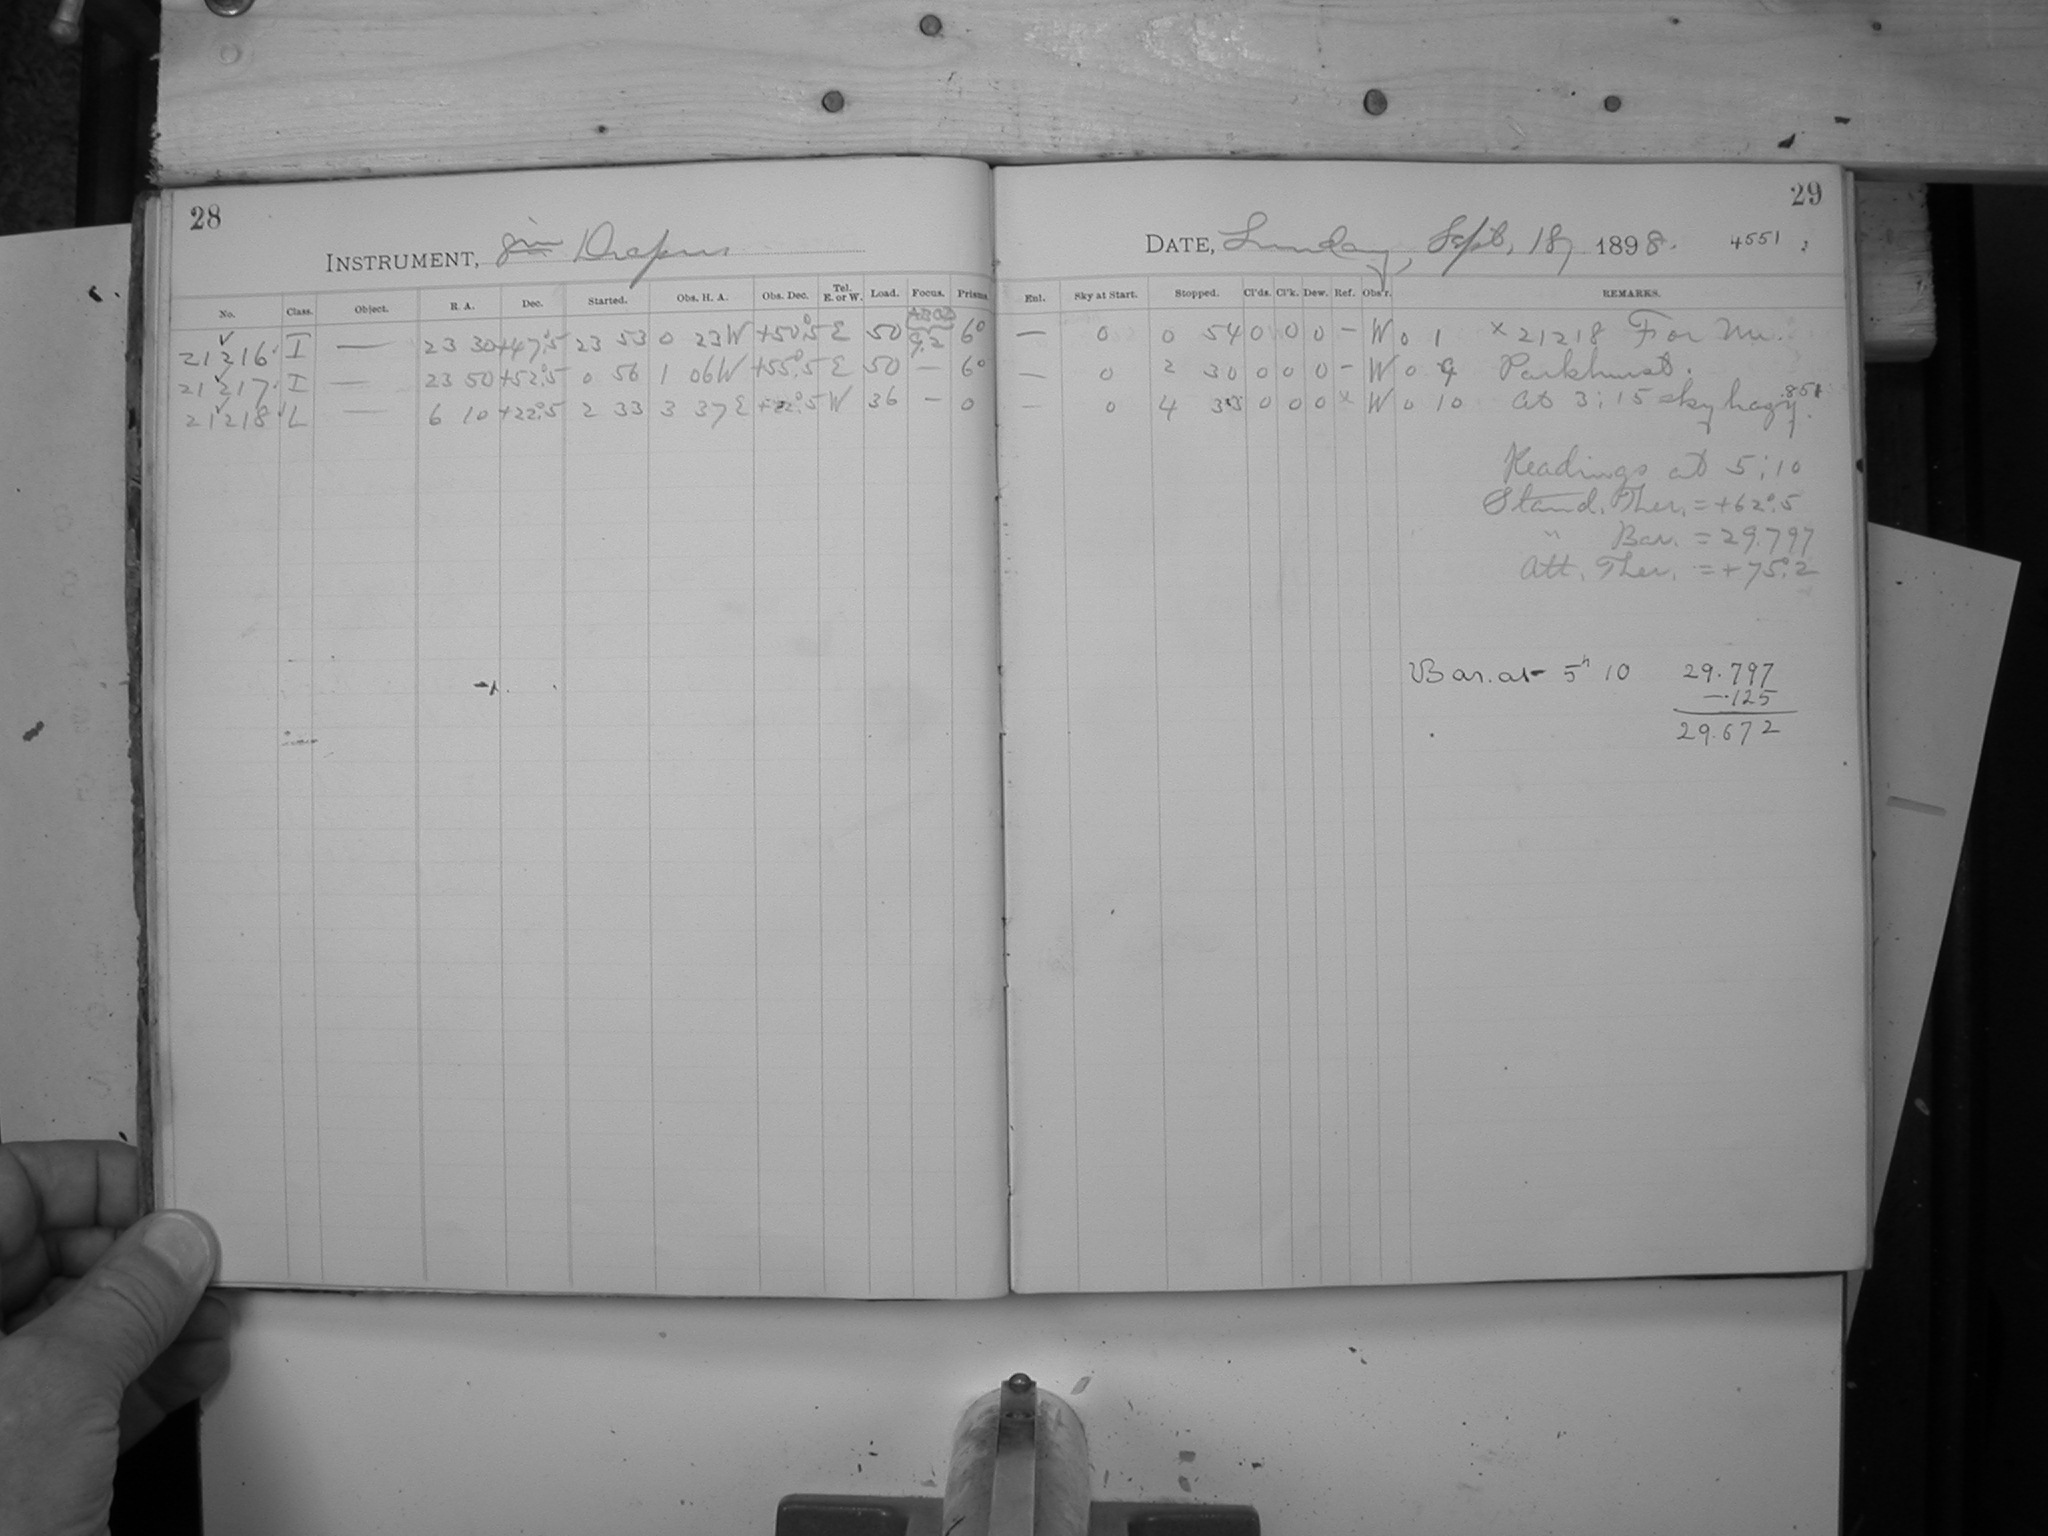 28
INSTRUMENT, Draper
No. Class. Object. R. A. Dec. Started. Obs. H. A. Obs. Dec. Tel. E. or W. Load. Focus. Prisms
21216 I — 23 30 +47°.5 23 53 0 23W +50°.5 E 50 9.2 6°
21217 I — 23 50 +52°.5 0 56 1 06W +55°.5 E 50 — 6°
21218 L — 6 10 +22°.5 2 33 3 37E +22°.5 W 36 — 0
29
DATE, Sunday, Sept. 18, 1898. 4551
Enl. Sky at Start. Stopped. Cl'ds. Cl'k. Dew. Ref. Obs'r. REMARKS.
— 0 0 54 0 0 0 — W 0 1 × 21218 For Mr.
— 0 2 30 0 0 0 — W 0 9 Parkhurst.
— 0 4 33 0 0 0 × W 0 10 At 3:15 sky hazy. .851
Readings at 5:10
Stand. Ther. = +62°.5
" Bar. = 29.797
Att. Ther. = +75°.2
Bar. at 5h 10 29.797
—.125
29.672